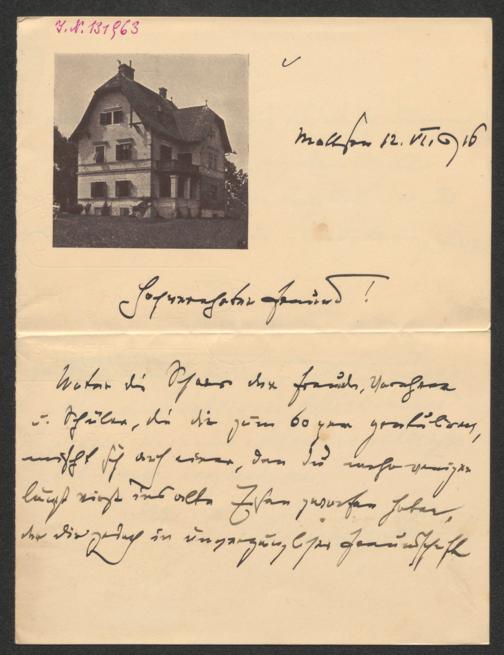 I. N. 131963
12. VI. 1916
Hochverehrter Freund!
Unter die Schaar der Freunde, Verehrer
u. Schüler, die dir zum 60ger gratuliren,
mischt sich auch einer, den du mehr weniger
längst nicht ins alte Eisen geworfen haben,
der dir jedoch in unvergänglicher Freundschaft